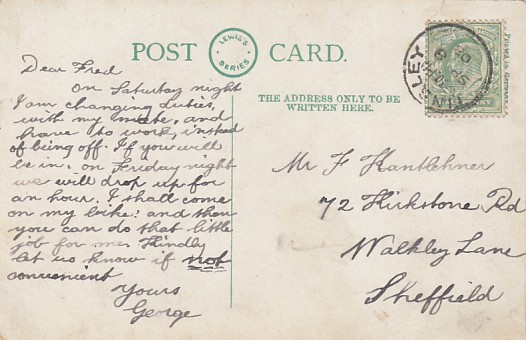 POST CARD.
LEWIS'S
SERIES
Dear Fred
On Saturday night
I am changing duties,
with my mate, and
have to work, instead
of being off. If you will
be in: on Friday night
we will drop up for
an hour. I shall come
on my bike: and then
you can do that little
job for me. Kindly
let us know if not
convenient
Yours
George
THE ADDRESS ONLY TO BE
WRITTEN HERE.
TINSLEY
Mr F Kantlehner
72 Hirkstone Rd
Walkley Lane
Sheffield